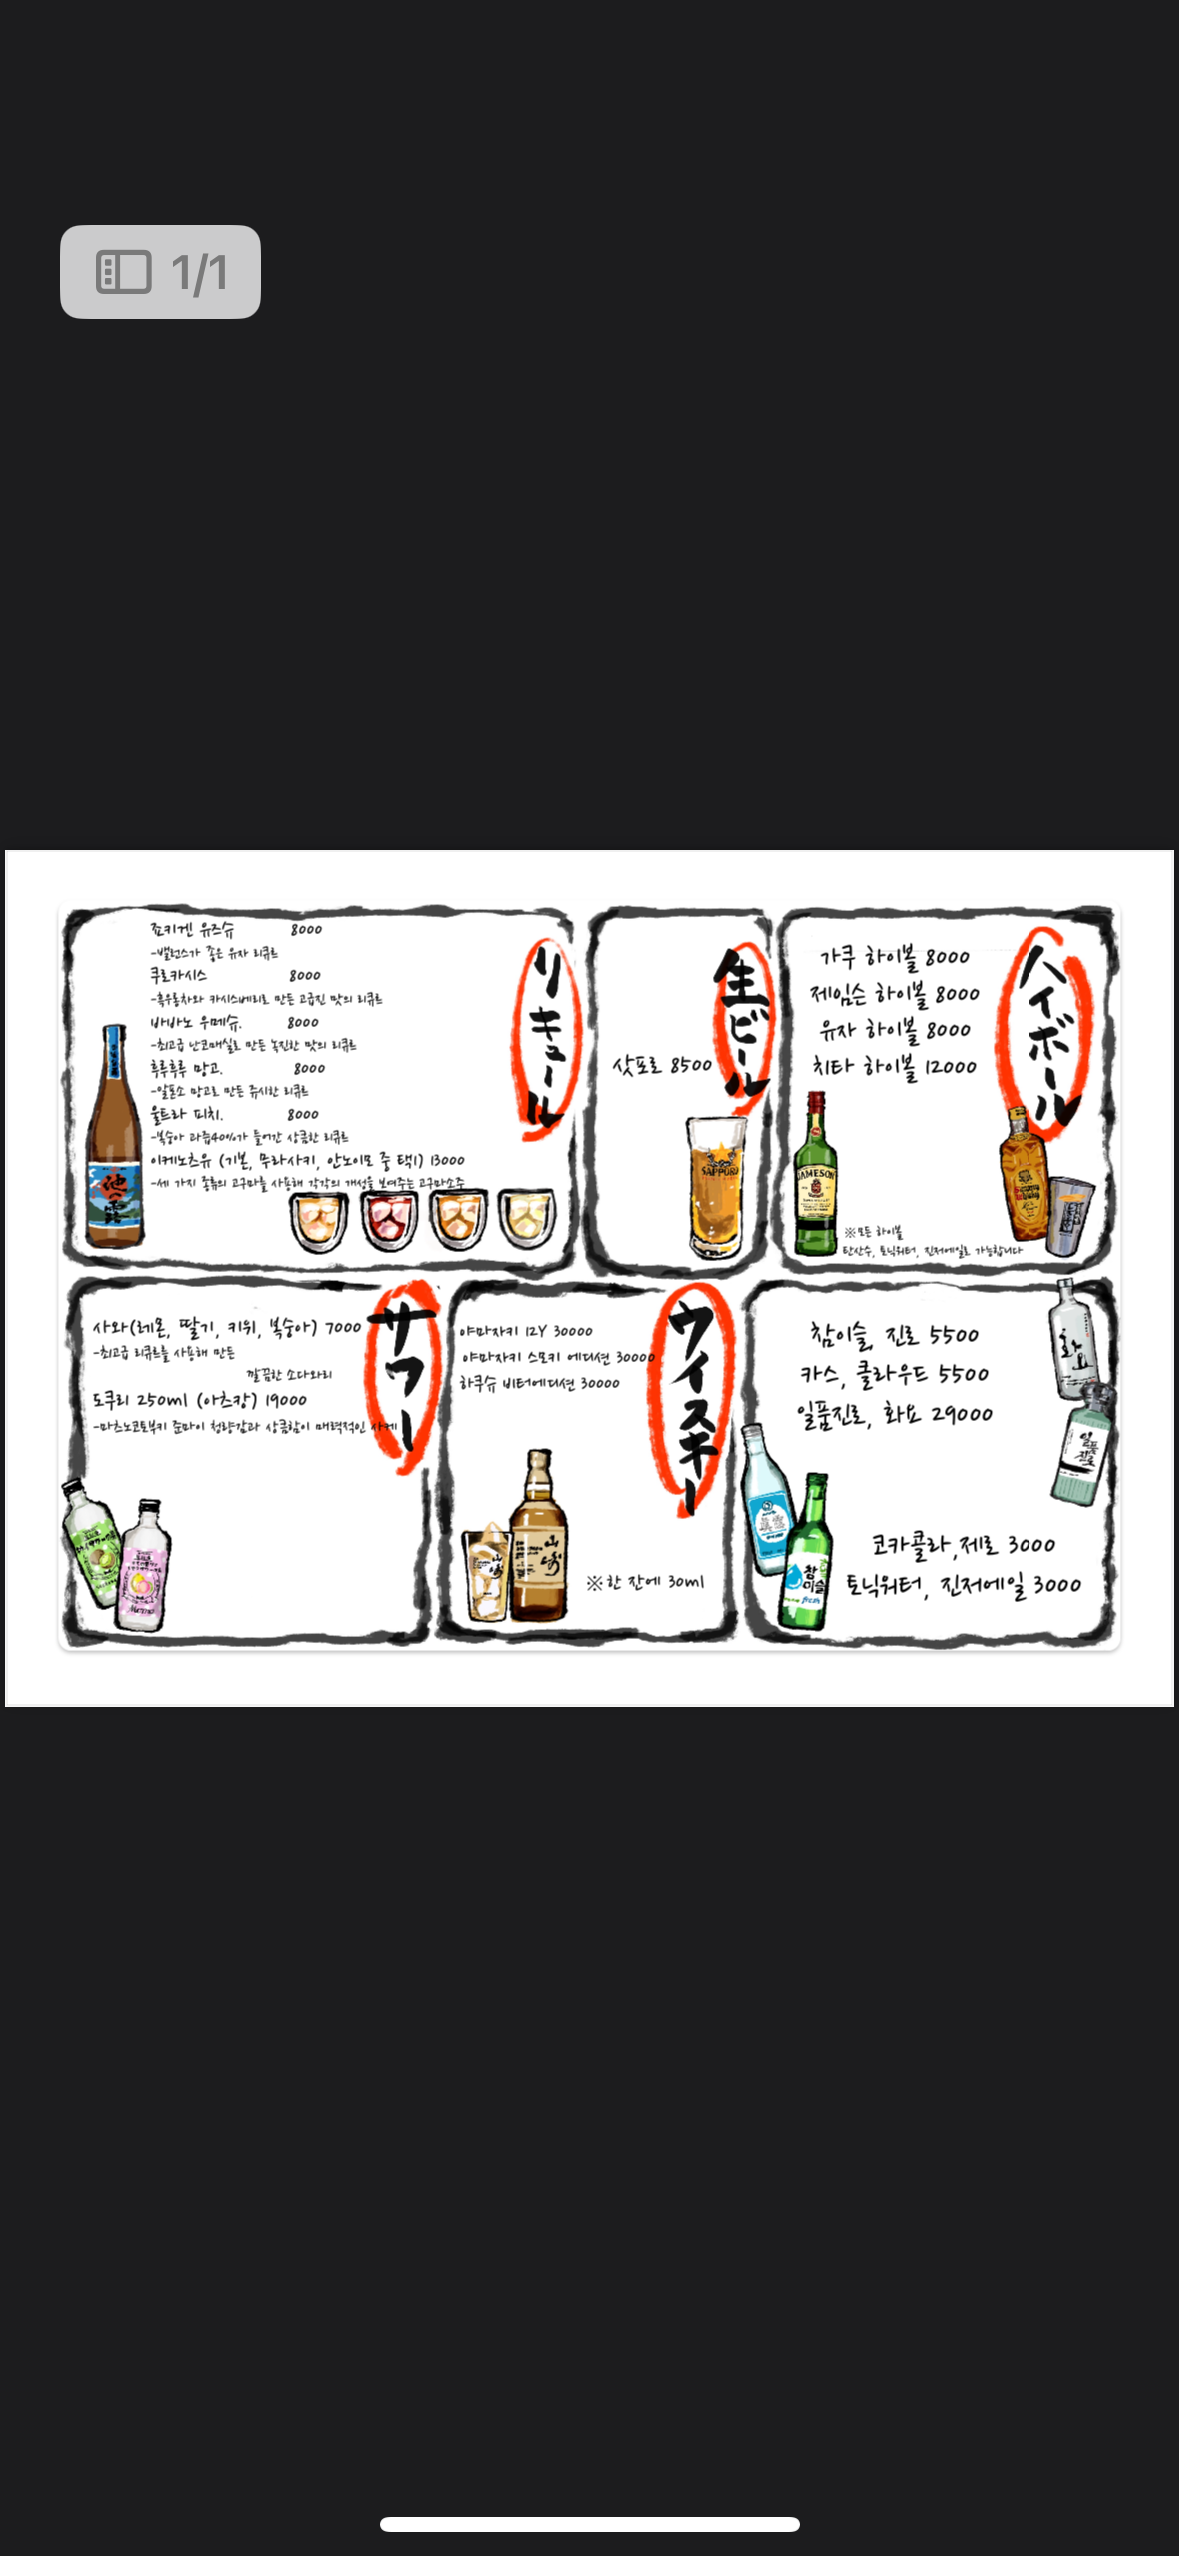 1/1
죠키겐 유즈슈 8000
-밸런스가 좋은 유자 리큐르
쿠로카시스 8000
-흑우롱차와 카시스베리로 만든 고급진 맛의 리큐르
바바노 우메슈. 8000
-최고급 난코매실로 만든 녹진한 맛의 리큐르
후루후루 망고. 8000
-알폰소 망고로 만든 쥬시한 리큐르
울트라 피치. 8000
-복숭아 과즙40%가 들어간 상큼한 리큐르
이케노츠유 (기본, 무라사키, 안노이모 중 택1) 13000
-세 가지 종류의 고구마를 사용해 각각의 개성을 보여주는 고구마소주
リキュール
池の露
生ビール
삿포로 8500
SAPPORO
ハイボール
가쿠 하이볼 8000
제임슨 하이볼 8000
유자 하이볼 8000
치타 하이볼 12000
JAMESON
※모든 하이볼
탄산수, 토닉워터, 진저에일로 가능합니다
サワー
사와(레몬, 딸기, 키위, 복숭아) 7000
-최고급 리큐르를 사용해 만든
깔끔한 소다와리
도쿠리 250ml (아츠캉) 19000
-마츠노코토부키 준마이 청량감과 상큼함이 매력적인 사케
Momo
ウイスキー
야마자키 12Y 30000
야마자키 스모키 에디션 30000
하쿠슈 비터에디션 30000
山崎
※한 잔에 30ml
참이슬, 진로 5500
카스, 클라우드 5500
일품진로, 화요 29000
화요
일품
진로
참이슬
fresh
코카콜라,제로 3000
토닉워터, 진저에일 3000